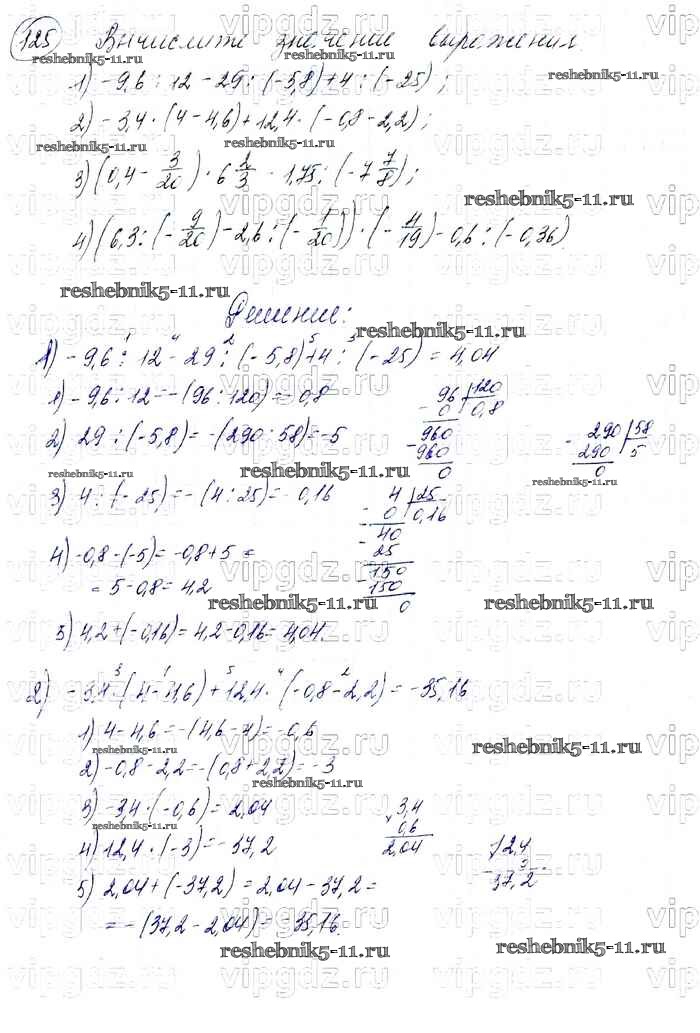 125 Вычислите значение выражения
1) -9,6 : 12 - 29 : (-5,8) + 4 : (-25);
2) -3,4 · (4 - 4,6) + 12,4 · (-0,8 - 2,2);
3) (0,4 - 3/20) · 6 2/3 - 1,75 : (-7 7/8);
4) (6,3 : (-9/20) - 2,6 : (-1/20)) · (-4/19) - 0,6 : (-0,36)
Решение:
1) -9,6 : 12 - 29 : (-5,8) + 4 : (-25) = 4,04
1) -9,6 : 12 = -(96 : 120) = -0,8
96 120
0 0,8
960
960
0
2) 29 : (-5,8) = -(290 : 58) = -5
290 58
290 5
0
3) 4 : (-25) = -(4 : 25) = -0,16
4 25
0 0,16
40
25
150
150
0
4) -0,8 - (-5) = -0,8 + 5 =
= 5 - 0,8 = 4,2
5) 4,2 + (-0,16) = 4,2 - 0,16 = 4,04.
2) -3,4 · (4 - 4,6) + 12,4 · (-0,8 - 2,2) = -35,16
1) 4 - 4,6 = -(4,6 - 4) = -0,6
2) -0,8 - 2,2 = -(0,8 + 2,2) = -3
3) -3,4 · (-0,6) = 2,04
3,4
0,6
2,04
4) 12,4 · (-3) = -37,2
12,4
3
37,2
5) 2,04 + (-37,2) = 2,04 - 37,2 =
= -(37,2 - 2,04) = -35,16.
reshebnik5-11.ru
vipgdz.ru